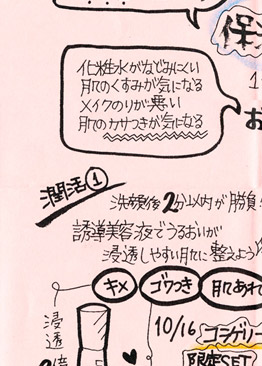 保
化粧水がなじみにくい
肌のくすみが気になる
メイクのりが悪い
肌のカサつきが気になる
潤活①
洗顔後2分以内が勝負!
誘導美容液でうるおいが
浸透しやすい肌に整えよう
キメ
ゴワつき
肌あれ
浸透
10/16
限定SET